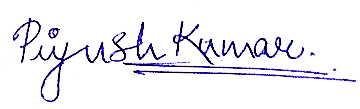 Piyush Kumar.